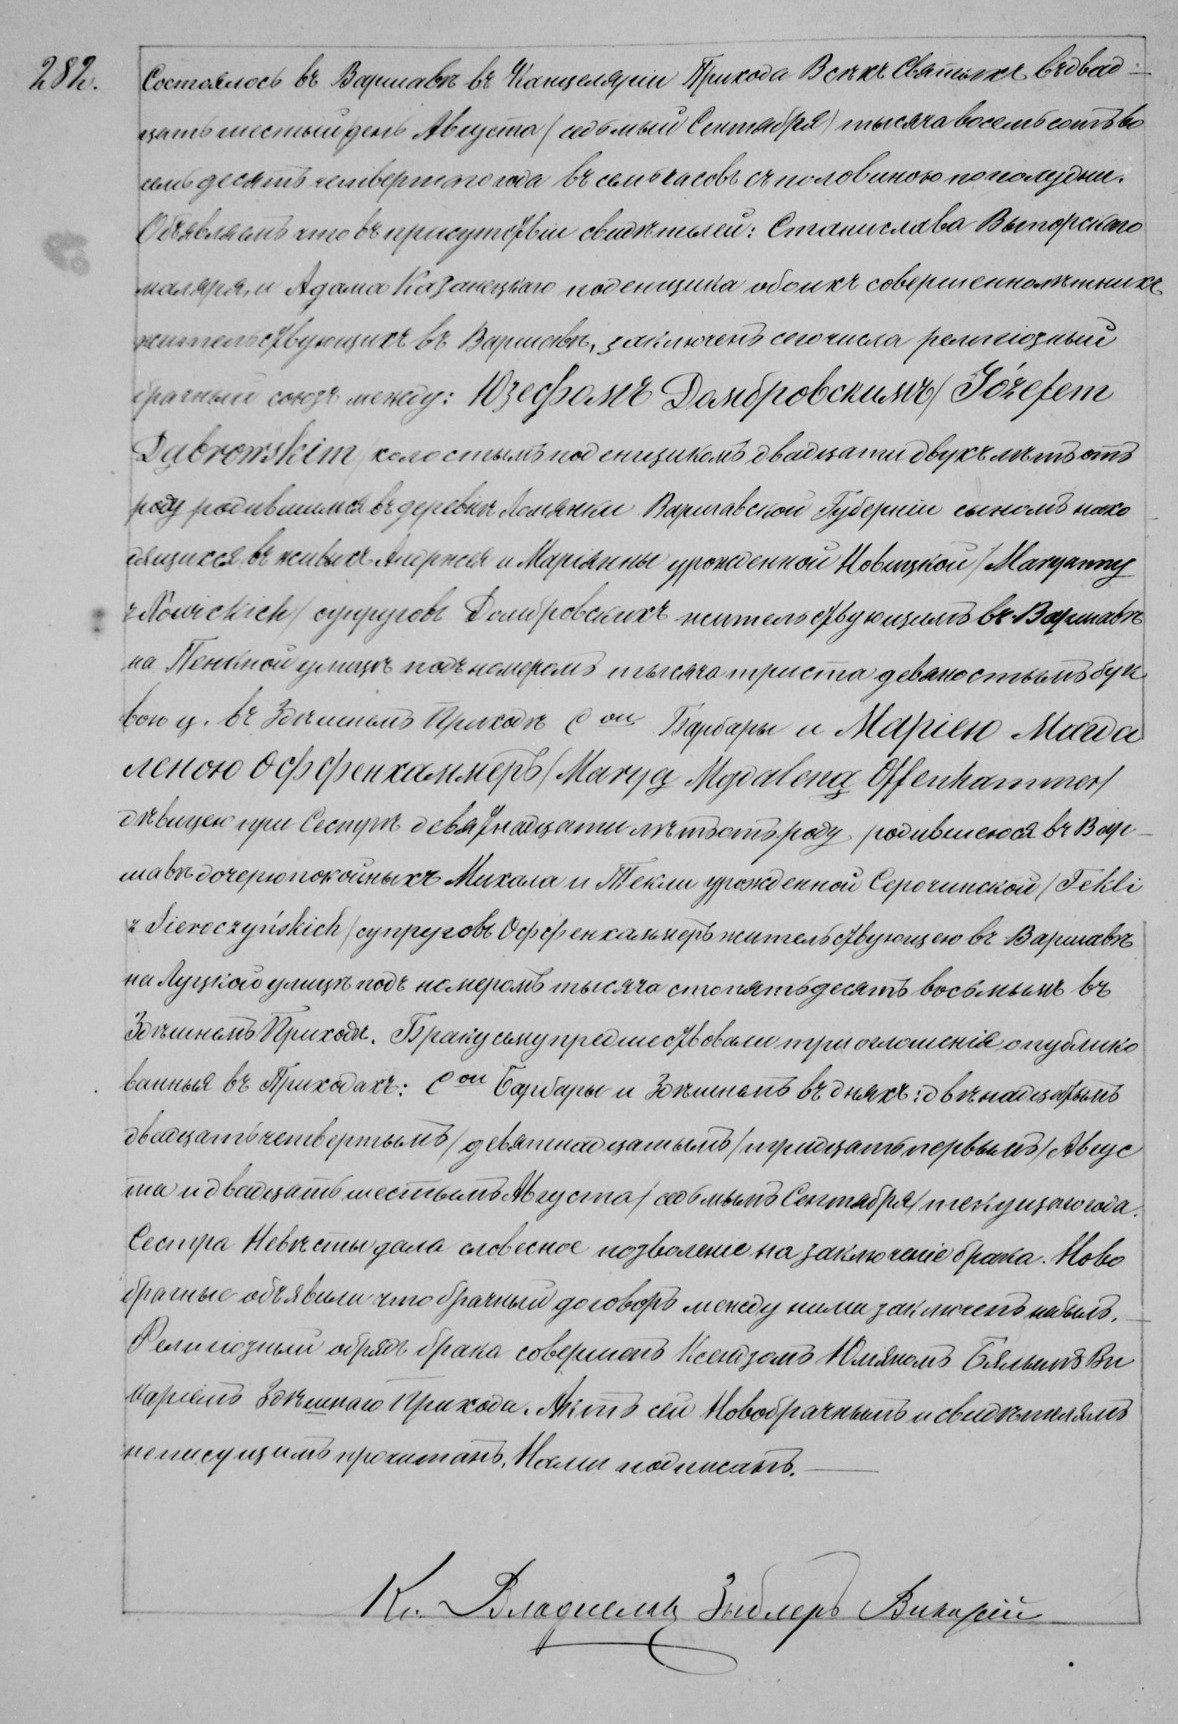 282.
Состоялось въ Варшавѣ въ Канцеляріи Прихода Всѣхъ Святыхъ въ двад-
цать шестый день Августа / седьмый Сентября / тысяча восемьсотъ во
семьдесятъ четвертаго года въ семь часовъ съ половиною пополудни.
Объявляемъ что въ присутствіи свидѣтелей: Станислава
маляра, и Адама поденщика обоихъ совершеннолѣтнихъ
жительствующихъ въ Варшавѣ, заключенъ сего числа религіозный
брачный союзъ между: Юзефомъ Домбровскимъ / Józefem
Dąbrowskim / холостымъ поденщикомъ двадцати двухъ лѣтъ отъ
роду родившимся въ деревнѣ Ломянки Варшавской Губерніи сыномъ нахо
дящихся въ живыхъ Андржея и Маріянны урожденной Новицкой / Maryanny
z Nowickich / супруговъ Домбровскихъ жительствующимъ въ Варшавѣ
на улицѣ подъ номеромъ тысяча триста девяностымъ бук
вою ц. въ Здѣшнемъ Приходѣ Сой Барбары и Маріею Магда
леною Оффенхаммеръ / Maryą Mgdaleną Offenhammer /
дѣвицею при Сестрѣ девятнадцати лѣтъ отъ роду, родившеюся въ Вар-
шавѣ дочерью покойныхъ Михала и Текли урожденной Серочинской / Tekli
z Sieroczyńskich / супруговъ Оффенхаммеръ жительствующею въ Варшавѣ
на Луцкой улицѣ подъ номеромъ тысяча сто пятьдесятъ восьмымъ въ
Здѣшнемъ Приходѣ. Браку сему предшествовали три оглашенія опублико
ванныя въ Приходахъ: Сой Барбары и Здѣшнемъ въ дняхъ: двѣнадцатымъ
двадцать четвертымъ / девятнадцатымъ / тридцать первымъ / Авгус
та и двадцать шестымъ Августа / седьмымъ Сентября / текущаго года.
Сестра Невѣсты дала словесное позволеніе на заключеніе брака. Ново
брачные объявили что брачный договоръ между ними заключенъ небылъ.
Религіозный обрядъ брака совершенъ Ксендзомъ Юліяномъ Бялымъ Ви
каріемъ Здѣшняго Прихода. Актъ сей Новобрачнымъ и свидѣтелямъ
неписущимъ прочитанъ, Нами подписанъ.
Кс. Владиславъ Викарій